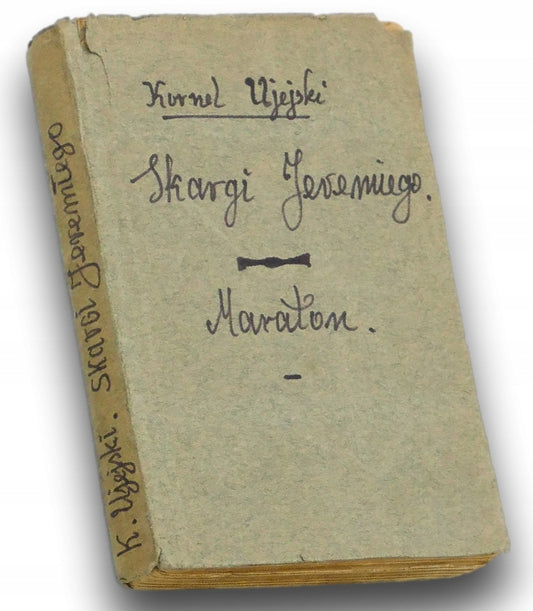 Kornel Ujejski
Skargi Jeremiego.
Maraton.
K. Ujejski. Skargi Jeremiego